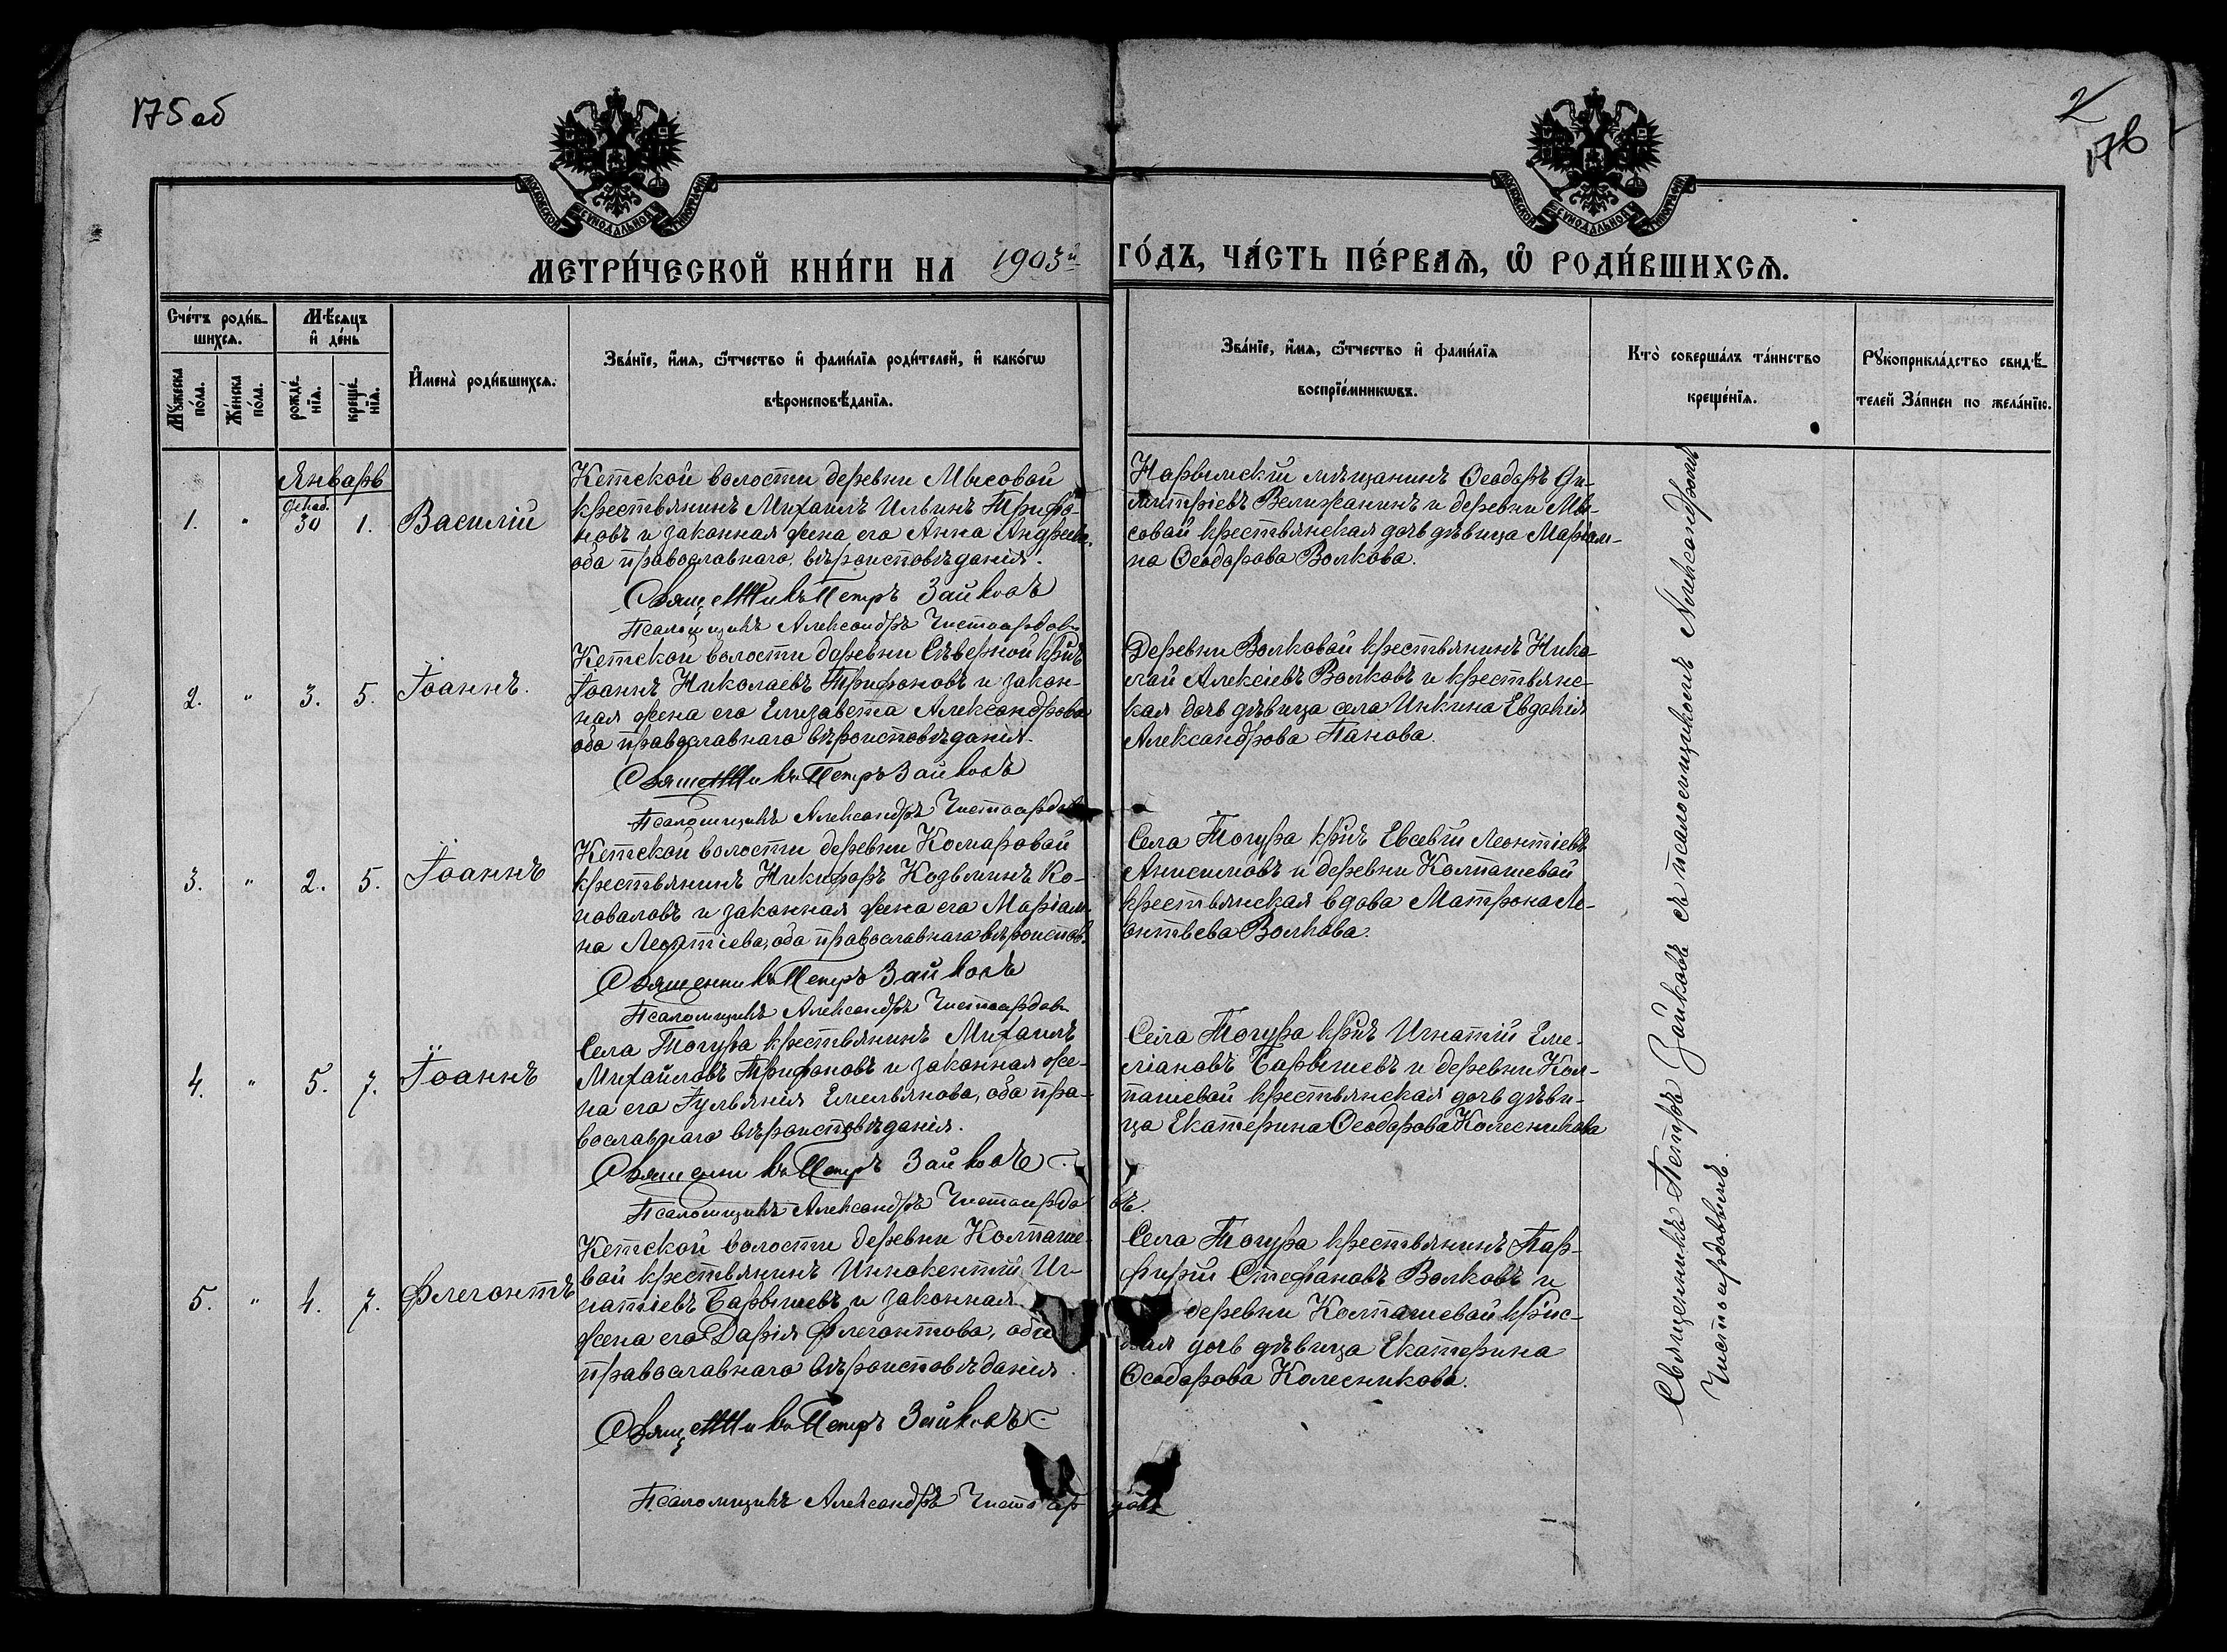 175 об
2
176
МОСКОВСКОЙ СѴНОДАЛЬНОЙ ТИПОГРАФІИ
МОСКОВСКОЙ СѴНОДАЛЬНОЙ ТИПОГРАФІИ
МЕТРИ́ЧЕСКОЙ КНИ́ГИ НА 1903й ГО́ДЪ, ЧА́СТЬ ПЕ́РВАѦ, Ѽ РОДИ́ВШИХСѦ.
Сче́тъ роди́в-
шихсѧ.
Мꙋ́жеска
по́ла.
Же́нска
по́ла.
Мѣ́сѧцъ
и҆ де́нь
рожде́-
нїѧ.
креще́-
нїѧ.
И҆мена̀ роди́вшихсѧ.
Зва́нїе, и҆́мѧ, ѻ҆́тчество и҆ фами́лїѧ роди́телей, и҆ како́гѡ
вѣроисповѣ́данїѧ.
Зва́нїе, и҆́мѧ, ѻ҆́тчество и҆ фами́лїѧ
воспрїе́мникѡвъ.
Кто̀ соверша́лъ та́инство
креще́нїѧ.
Рꙋкоприкла́дство свидѣ́-
телей За́писи по жела́нїю.
Январь
Декаб.
1. " 30 1. Василій
Кетской волости деревни Мысовой
крестьянинъ Михаилъ Ильинъ Трифо-
новъ и законная жена его Анна Андреева,
оба православнаго вѣроисповѣданія.
Священникъ Петръ Зайковъ
Псаломщикъ Александръ Чистосердовъ
Нарымскій мѣщанинъ Ѳеодоръ Ди-
митріевъ Велижанинъ и деревни Мы-
совой крестьянская дочь дѣвица Маріам-
на Ѳеодорова Волкова.
2. " 3. 5. Іоаннъ.
Кетской волости деревни Сѣверной кр̃нъ
Іоаннъ Николаевъ Трифоновъ и закон-
ная жена его Елизавета Александрова
оба православнаго вѣроисповѣданія.
Священникъ Петръ Зайковъ
Псаломщикъ Александръ Чистосердовъ
Деревни Волковой крестьянинъ Нико-
лай Алексіевъ Волковъ и крестьянс-
кая дочь дѣвица села Инкина Евдокія
Александрова Панова.
3. " 2. 5. Іоаннъ
Кетской волости деревни Комаровой
крестьянинъ Никифоръ Козьминъ Ко-
новаловъ и законная жена его Маріам-
на Леонтіева, оба православнаго вѣроиспов.
Священникъ Петръ Зайковъ
Псаломщикъ Александръ Чистосердовъ
Села Тогура кр̃нъ Евсевій Леонтіевъ
Анисимовъ и деревни Колпашевой
крестьянская вдова Матрона Ле-
онтьева Волкова.
4. " 5. 7. Іоаннъ
Села Тогура крестьянинъ Михаилъ
Михайловъ Трифоновъ и законная же-
на его Іульянія Емельянова, оба пра-
вославнаго вѣроисповѣданія.
Священникъ Петръ Зайковъ
Псаломщикъ Александръ Чистосердовъ.
Села Тогура кр̃нъ Игнатій Еме-
ліановъ Барышевъ и деревни Кол-
пашевой крестьянская дочь дѣви-
ца Екатерина Ѳеодорова Колесникова
5. " 4. 7. Флегонтъ
Кетской волости деревни Колпаше-
вой крестьянинъ Иннокентій Иг-
натіевъ Барышевъ и законная
жена его Дарія Флегонтова, оба
православнаго вѣроисповѣданія.
Священникъ Петръ Зайковъ
Псаломщикъ Александръ Чистосердовъ
Села Тогура крестьянинъ Пор-
фирій Стефановъ Волковъ и
деревни Колпашевой кр̃нс-
кая дочь дѣвица Екатерина
Ѳеодорова Колесникова.
Священникъ Петръ Зайковъ съ псаломщикомъ Александромъ
Чистосердовымъ.